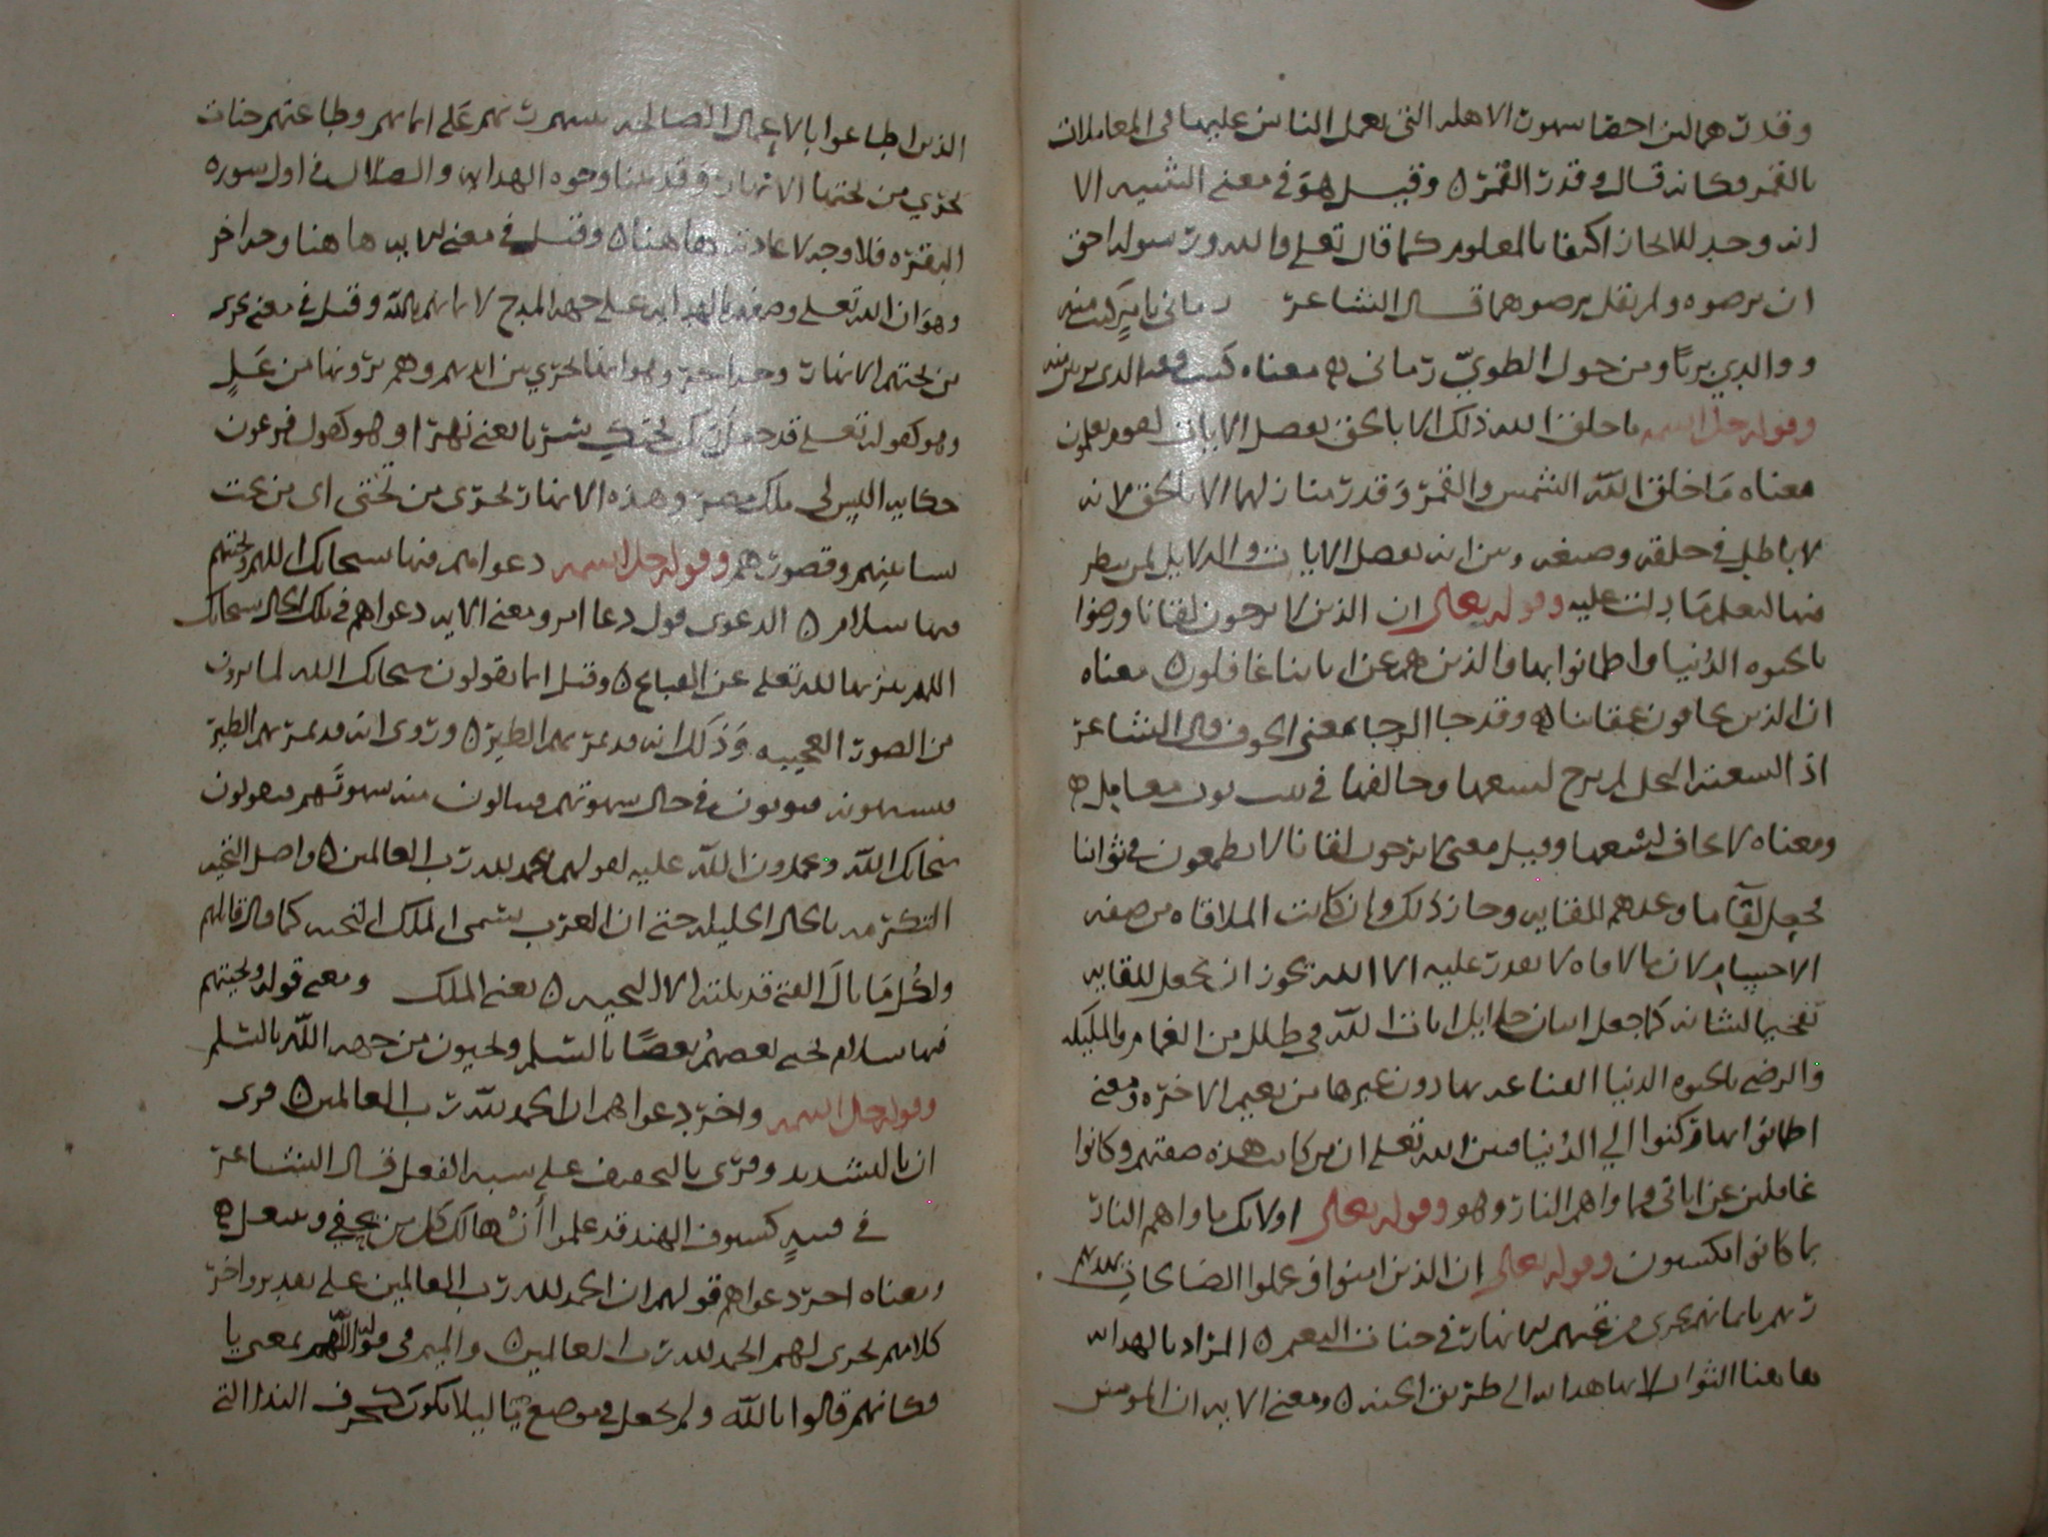 وقدرهما لان احصا شهور الاهله التى يعمل الناس عليها فى المعاملات
بالقمر فكانه قال وقدر القمر ٥ وقيل هو فى معنى التثنيه الا
انه وحد للايجاز اكتفا بالمعلوم كما قال تعلى والله ورسوله احق
ان يرضوه ولم يقل يرضوهما قال الشاعر رمانى بامر كنت منه
ووالدي بريا ومن جول الطويّ رمانى ٥ معناه كنت منه
وقوله جل اسمه ما خلق الله ذلك الا بالحق يفصل الايات لقوم يعلمون
معناه ما خلق الله الشمس والقمر وقدر منازلهما الا بالحق لانه
لا باطل فى خلقه وصنعه وبين انه يفصل الايات والدلايل لمن ينظر
فيها ليعلم ما دلت عليه وقوله تعالى ان الذين لا يرجون لقانا ورضوا
بالحيوه الدنيا واطمانوا بها والذين هم عن اياتنا غافلون ٥ معناه
ان الذين يخافون عقابنا ٥ وقد جا الرجا بمعنى الخوف قال الشاعر
اذا لسعته النحل لم يرج لسعها وخالفها فى بيت نوب عوامل ٥
ومعناه لا يخاف لسعها وقيل معنى لا يرجون لقانا لا يطمعون فى ثوابنا
فجعل لقا ما وعدهم للقايه وجاز ذلك وان كانت الملاقاه من صفه
الاجسام لان ما لا يقدر عليه الا الله يجوز ان يجعل للقايه
تفخيما لشانه كما جعل اتيان جلايل ايات الله فى ظلل من الغمام والمليكه
والرضى بالحيوه الدنيا القناعه بها دون غيرها من نعيم الاخره ومعنى
اطمانوا بها وركنوا الي الدنيا فبين الله تعلى ان من كانت هذه صفتهم وكانوا
غافلين عن اياتى فماواهم النار وهو وقوله تعالى اولايك ماواهم النار
بما كانوا يكسبون وقوله تعالى ان الذين امنوا وعملوا الصالحات يهديهم
ربهم بايمانهم تجرى من تحتهم الانهار فى جنات النعيم ٥ المراد بالهدايه
هاهنا الثواب لانها هدايه الى طريق الجنه ٥ ومعنى الايه ان المومنين
الذين اطاعوا بالاعمال الصالحه يثيبهم ربهم على ايمانهم وطاعتهم جنات
تجري من تحتها الانهار وقد بينا وجوه الهدايه والضلال فى اول سوره
البقره فلا وجه لاعادته هاهنا ٥ وقيل فى معنى الايه هاهنا وجه اخر
وهو ان الله تعلى وصفهم بالهدايه على جهه المدح لايمانهم بالله وقيل فى معنى تجرى
من تحتهم الانهار وجه اخر وهو انها تجري بين ايديهم وهم يرونها من عَلٍ
وهو كقوله تعلى قد جعل ربك تحتك سريا يعنى نهرا وهو كقول فرعون
حكايه اليس لى ملك مصر وهذه الانهار تجرى من تحتى اى من تحت
بساتينهم وقصورهم وقوله جل اسمه دعواهم فيها سبحانك اللهم وتحيتهم
فيها سلام ٥ الدعوى قول دعا اليه ومعنى الايه دعواهم فى تلك الحال سبحانك
اللهم تنزيها لله تعلى عن القبايح ٥ وقيل انما يقولون سبحانك الله لما يرون
من الصور العجيبه وذلك انه قد يمر بهم الطير ٥ وروى انه قد يمر بهم الطير
فيشتهونه فيوتون فى حال شهوتهم فينالون منه شهوتهم فيقولون
سبحانك الله ويحمدون الله عليه لقولهم الحمد لله رب العالمين ٥ واصل التحيه
التكرمه بالحال الجليله حتى ان العرب تسمى الملك التحيه كما قال قايلهم
ولكل ما نال الفتى قد نلته الا التحيه ٥ يعنى الملك ومعنى قوله وتحيتهم
فيها سلام تحيه بعضهم بعضا بالسلم ويحيون من جهه الله بالسلم
وقوله جل اسمه واخر دعواهم ان الحمد لله رب العالمين ٥ قرى
ان بالتشديد وقرى بالتخفيف على شبه الفعل قال الشاعر
فى فتيةٍ كسيوف الهند قد علموا أنْ هالك كل من يحفى وينتعل ٥
ومعناه اخر دعواهم قولهم ان الحمد لله رب العالمين على تقدير واخر
كلامهم يجرى لهم الحمد لله رب العالمين ٥ والميم فى قوله اللّهم بمعنى يا
فكانهم قالوا يالله ولم تجعل فى موضع يا ليلا تكون كحرف الندا التى